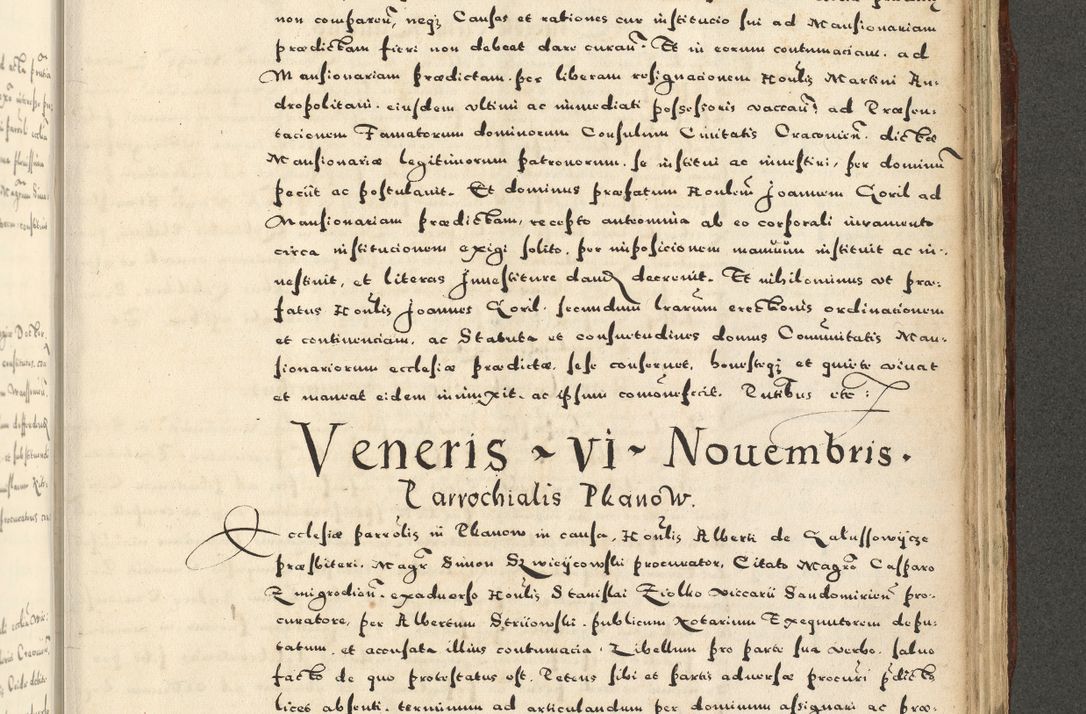 non comparen̄, neqꝫ Causas et rationes cur institucio sui ad Mansionariam
prædictam fieri non debeat dare curan̄. Et in eorum contumaciam. ad
Mansionariam prædictam. per liberam resignacionem Hon̄lis Martini An-
dropolitani. eiusdem vltimi ac immediati possessoris vaccan̄. ad Præsen-
tacionem Famatorum dominorum Consulum Ciuitatis Cracouien̄. dictæ
Mansionariæ legitimorum patronorum. se institui ac inuestiri, per dominum
peciit ac postulauit. Et dominus præfatum Honlem̄ Joannem Goril ad
Mansionariam prædictam, recepto anteomnia ab eo corporali iuramento
circa institucionem exigi solito. per imposicionem manuum instituit ac in-
uestiuit, et literas Inuestiture dand decreuit. Et nihilominus vt præ-
fatus Hon̄lis Joannes Goril. secundum lrarum erectionis ordinationem
et continenciam, ac Statuta et consuetudines domus Com̄unitatis Man-
sionariorum ecclesiæ prædictæ. sese conseruet, honesteqꝫ et quiete viuat
et maneat eidem iniunxit. ac ipsum com̄onefecit. Pn̄tibus etc:
Veneris ~ vi ~ Nouembris.
Parrochialis Pkanow.
Ecclesiæ parrōlis in Pkanow in causa, Hon̄lis Alberti de Galussowycze
præsbiteri, Magr̄ Simon Dzwicijcowski procurator, Citato Magr̄o Casparo
Zmigrodien̄. exaduerso Hon̄lis Stanislai Ziolko viccarii Sandomirien̄ pro-
curatore, per Albertum Strijowski. publicum Notarium Exequutorem depu-
tatum, et accusata illius contumacia. Libellum pro parte sua verbo. saluo
facto de quo protestatus est. Petens sibi et partis aduersæ procūri pdicto
licet absenti. terminum ad articulandum per dominum assignari ac præ-